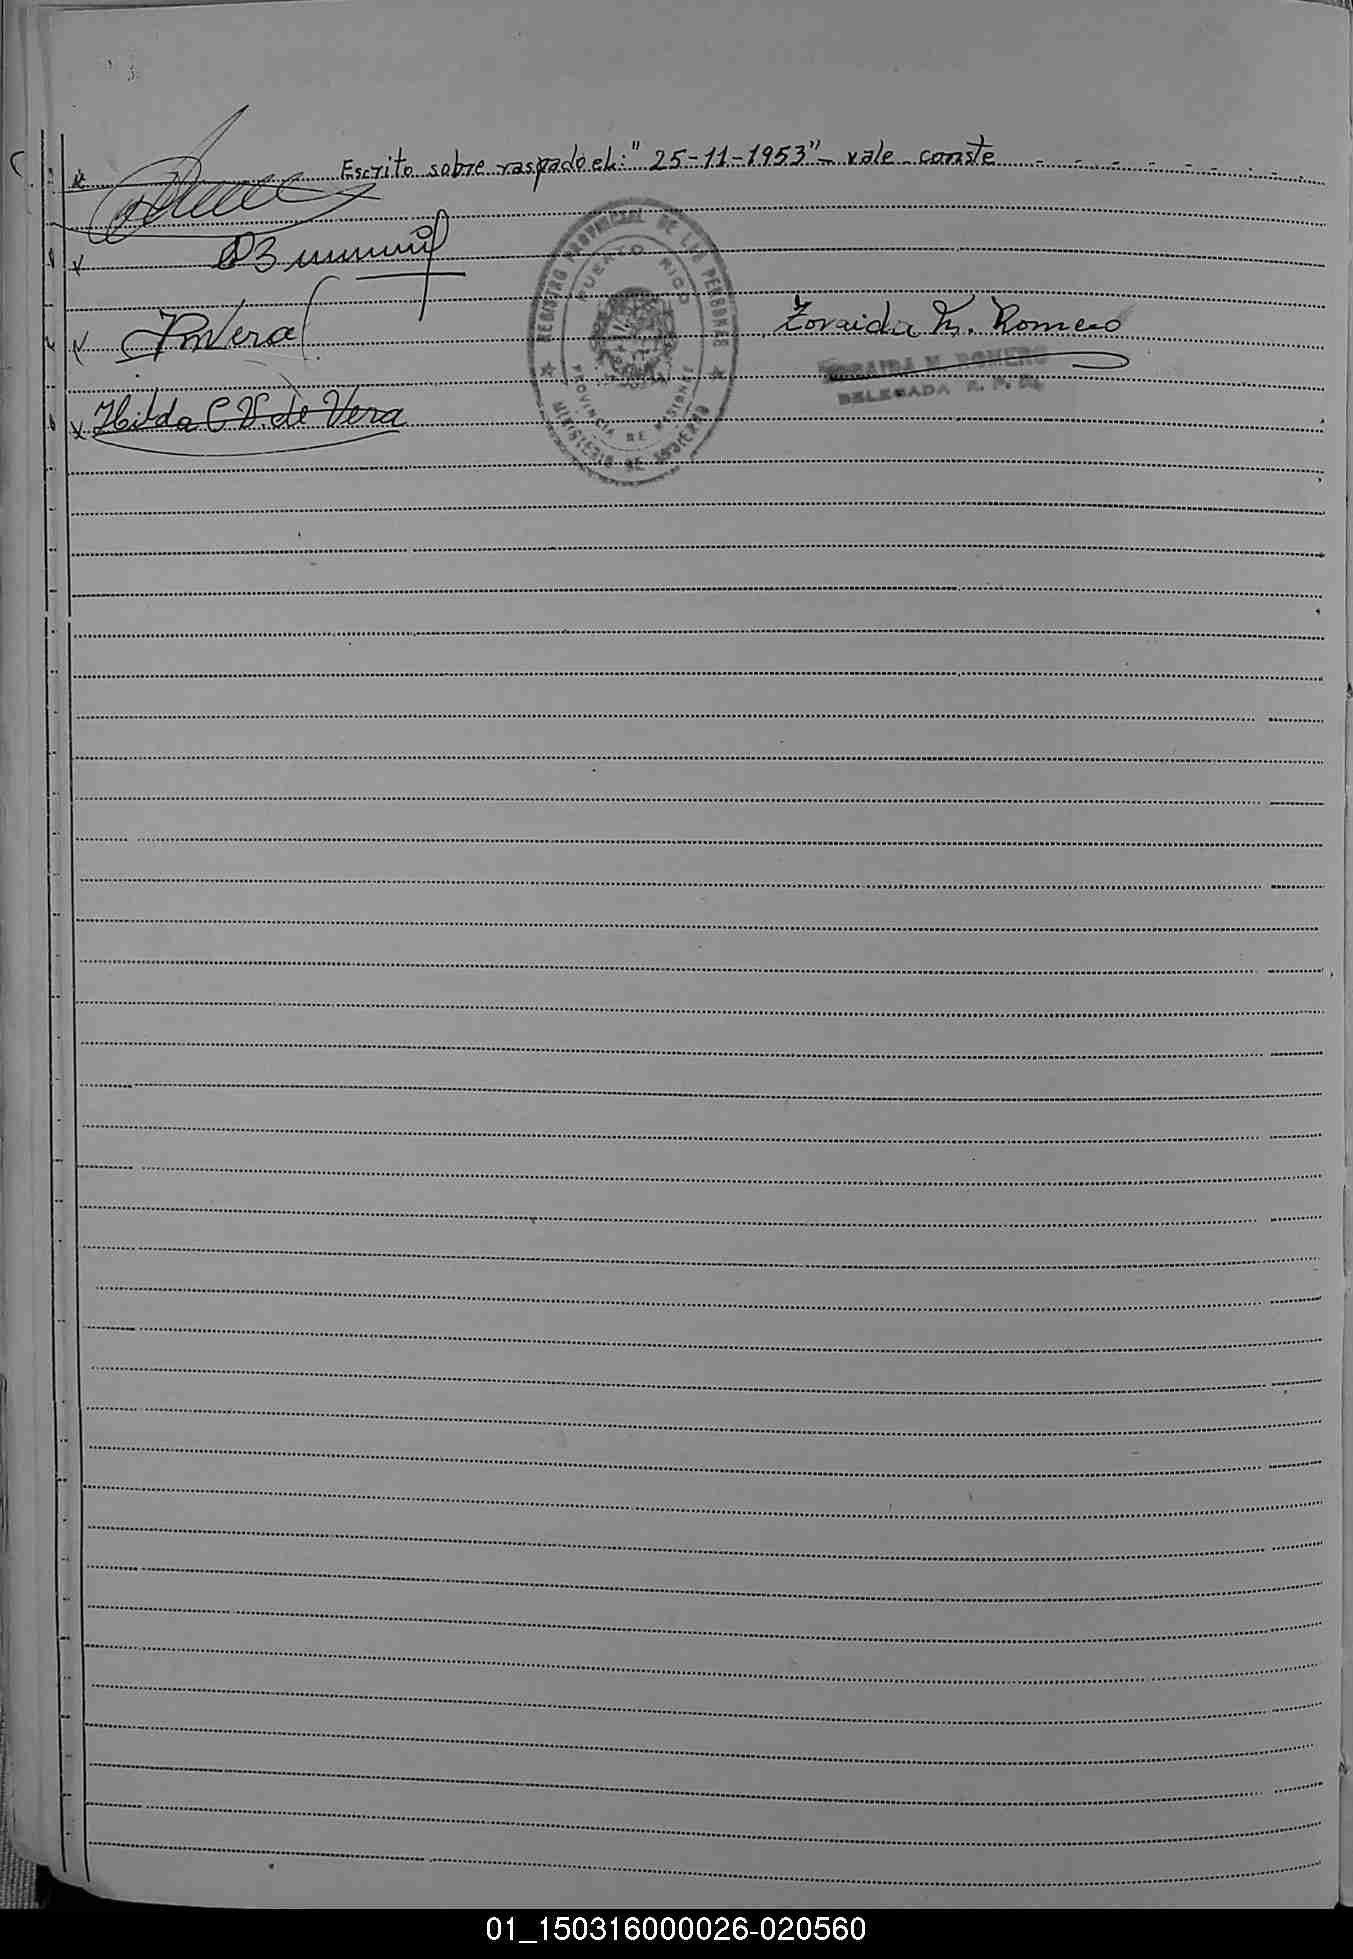 Escrito sobre raspado el: "25-11-1953" - vale - conste
Vera
Hilda C V. de Vera
REGISTRO PROVINCIAL DE LAS PERSONAS
PUERTO RICO
PROVINCIA DE MISIONES
MINISTERIO DE GOBIERNO
Zoraida M. Romero
ZORAIDA M. ROMERO
DELEGADA R. P. P.
01_150316000026-020560